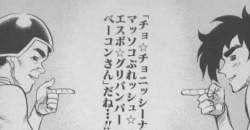 「チョ☆チョニッシーナ
マッソコぶれッシュ☆
エスボ☆グリバンバー
ベーコンさん」だね…!!